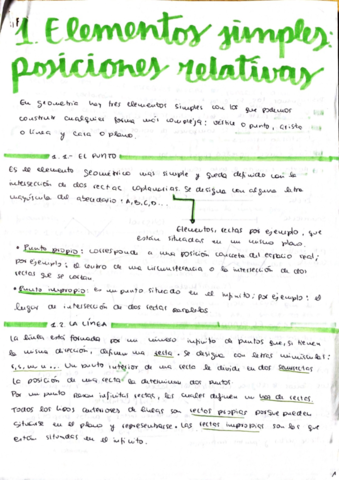 1. Elementos simples:
posiciones relativas
En geometría hay tres elementos simples con los que podemos
construir cualquier forma más compleja: vértice o punto, arista
o línea y cara o plano.
1.1- EL PUNTO
Es el elemento geométrico más simple y queda definido con la
intersección de dos rectas coplanarias. Se designa con alguna letra
mayúscula del abecedario: A, B, C, D...
Elementos, rectas por ejemplo, que
están situadas en un mismo plano.
• Punto propio: corresponde a una posición concreta del espacio real;
por ejemplo: el centro de una circunferencia o la intersección de dos
rectas que se cortan.
• Punto impropio: Es un punto situado en el infinito; por ejemplo: el
lugar de intersección de dos rectas paralelas.
1.2 LA LÍNEA
La línea está formada por un número infinito de puntos que, si tienen
la misma dirección, definen una recta. Se designa con letras minúsculas:
r, s, m, n... Un punto interior de una recta la divide en dos semirrectas
La posición de una recta la determina dos puntos.
Por un punto pasan infinitas rectas, las cuales definen un haz de rectas.
Todos los tipos anteriores de líneas son rectas propias porque pueden
situarse en el plano y representarse. Las rectas impropias son las que
están situadas en el infinito.